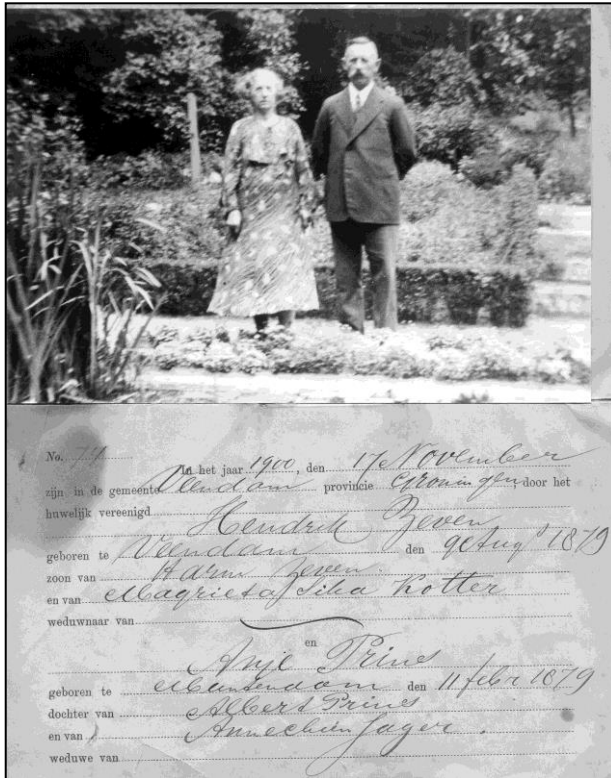 No. 74
In het jaar 1900, den 17 November
zijn in de gemeente Veendam provincie Groningen, door het
huwelijk vereenigd
Hendrik Zeven
geboren te Veendam den 9 Aug 1879
zoon van Harm Zeven.
en van Magrieta Sika Kotter
weduwnaar van
en
Anje Prins
geboren te Muntendam den 11 febr 1879
dochter van Albert Prins
en van Annechien Jager.
weduwe van